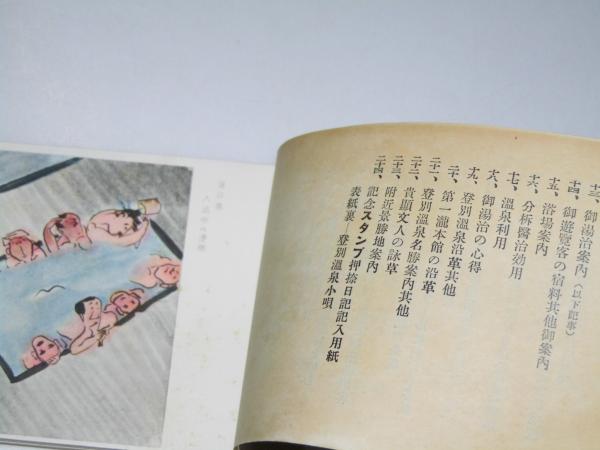 十三、御湯治案内(以下記事)
十四、御遊覧客の宿料其他御案内
十五、浴場案内
十六、分析醫治効用
十七、溫泉利用
十八、御湯治の心得
十九、登別溫泉沿革其他
二十、第一瀧本館の沿革
二十一、登別溫泉名勝案内其他
二十二、貴顯文人の詠草
二十三、附近景勝地案内
二十四、記念スタンプ押捺日記記入用紙
表紙裏―登別溫泉小唄